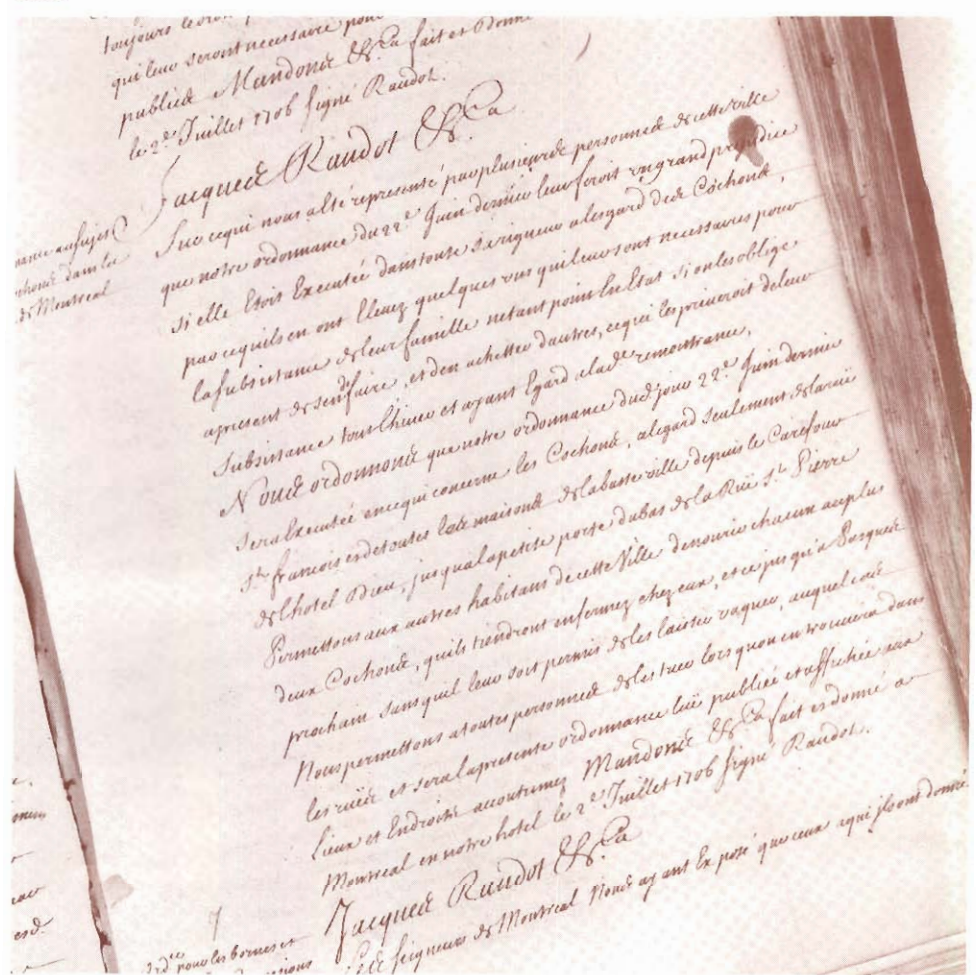 toujours
qui leur seront necessaire pour
publiée Mandons &c.a fait et donné
le 2.e Juillet 1706 signé Raudot.
Jacques Raudot &c.a
nance au sujet
chons dans les
de Montreal
Sur ce qui nous a été representé par plusieurs personnes de cette ville
que notre ordonnance du 22.e Juin dernier leur feroit un grand prejudice
si elle étoit Executée dans toute sa rigueur a l'esgard des Cochons,
par ce quils en ont Elevez quelques uns qui leur sont necessaires pour
la subsistance de leur famille netant point En Etat si on les oblige
apresent de sen défaire, et den achetter dautres, ce qui les priveroit de leur
subsistance tout l'hiver et ayant Egard a la d.e remontrance,
Nous ordonnons que notre ordonnance dud. jour 22.e Juin dernier
sera Executée en ce qui concerne les Cochons, alegard seulement de la rüe
S.t francois et de toutes les maisons de la basse ville depuis le Carefour
de l'hotel Dieu, jusqu'a la petite porte du bas de la Rüe S.t Pierre
Permettons aux autres habitans de cette Ville de nourir chacun au plus
deux Cochons, quils tiendront enfermez chez eux, et ce jusqu'a Pasques
prochain sans quil leur soit permis de les laisser vaguer, auquel cas
Nous permettons a toutes personnes de les tuer lors quon en trouvera dans
les rües et sera la presente ordonnance lüe publiée et affichée aux
Lieux et Endroits accoutumez Mandons &c.a fait et donné a
Montreal en notre hotel le 2.e Juillet 1706 signé Raudot.
Jacques Raudot &c.a
7
Ord.ce pour les bornes et
Seigneurs de Montreal Nous ayant Exposé que ceux a qui ils ont donné